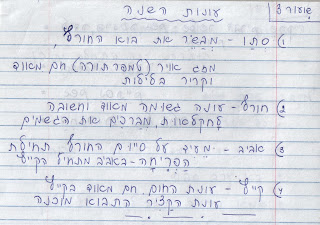 שיעור 3
עונות השנה
1) סתו - מְבַשֵּׂר את בוא החורף,
מזג אויר (טמפרטורה) חם מאוד
וקריר בלילות
2) חורף - עונה גשומה מאוד וחשובה
לחקלאות, מברכים את הגשמים
3) אביב - מעיד על סיום החורף. תחילת
הַפְּרִיחָה - באביב מתחיל הקיץ
4) קיץ - עונת החום, חם מאוד בקיץ
עונת הקציר התבואה מוכנה